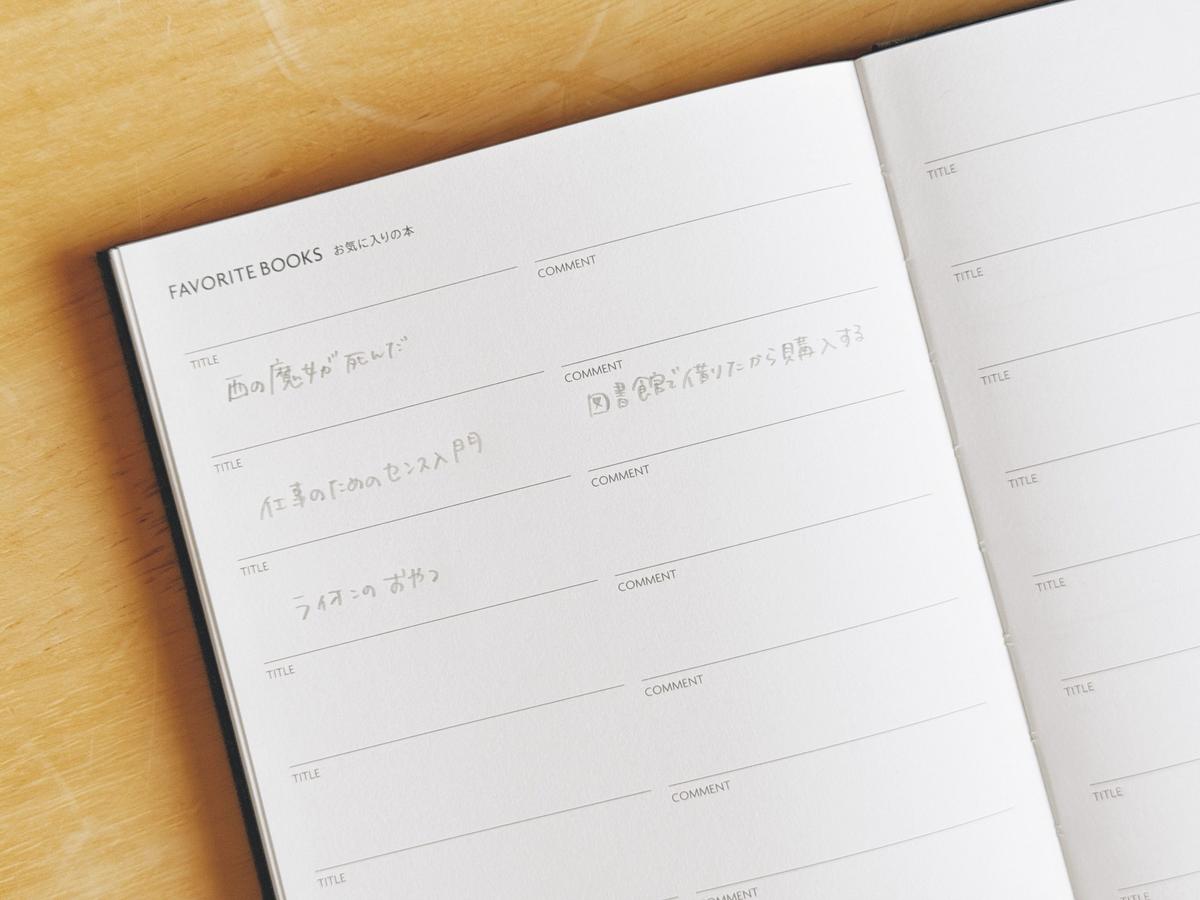 FAVORITE BOOKS お気に入りの本
COMMENT
TITLE
西の魔女が死んだ
COMMENT
図書館で借りたから購入する
TITLE
仕事のためのセンス入門
COMMENT
TITLE
ライオンのおやつ
COMMENT
TITLE
COMMENT
TITLE
COMMENT
TITLE
COMMENT
TITLE
TITLE
TITLE
TITLE
TITLE
TITLE
TITLE
TITLE